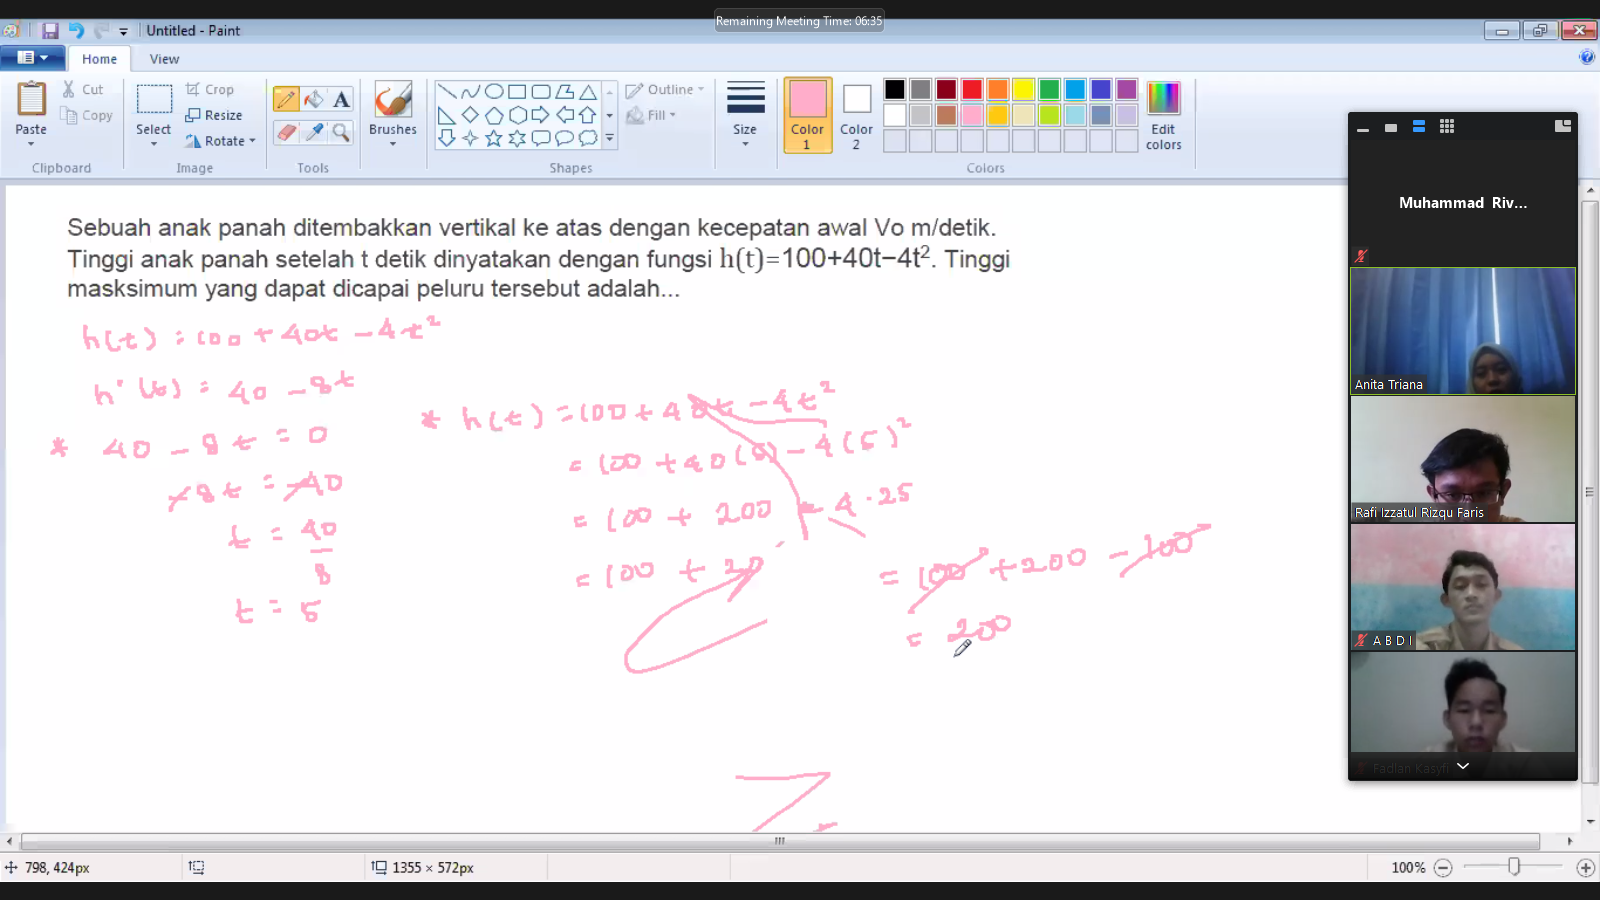 Remaining Meeting Time: 06:35
Untitled - Paint
Home
View
Paste
Cut
Copy
Clipboard
Select
Crop
Resize
Rotate
Image
A
Tools
Brushes
Outline
Fill
Shapes
Size
Color 1
Color 2
Edit colors
Colors
Sebuah anak panah ditembakkan vertikal ke atas dengan kecepatan awal Vo m/detik.
Tinggi anak panah setelah t detik dinyatakan dengan fungsi h(t)=100+40t−4t². Tinggi
masksimum yang dapat dicapai peluru tersebut adalah...
h(t) = 100 + 40t - 4t²
h'(t) = 40 - 8t
* 40 - 8t = 0
-8t = -40
t = 40
8
t = 5
* h(t) = 100 + 40t - 4t²
= 100 + 40(5) - 4(5)²
= 100 + 200 - 4.25
= 100 + 20
= 100 + 200 - 100
= 200
Muhammad Riv...
Anita Triana
Rafi Izzatul Rizqu Faris
A B D I
Fadlan Kasyfi
798, 424px
1355 × 572px
100%